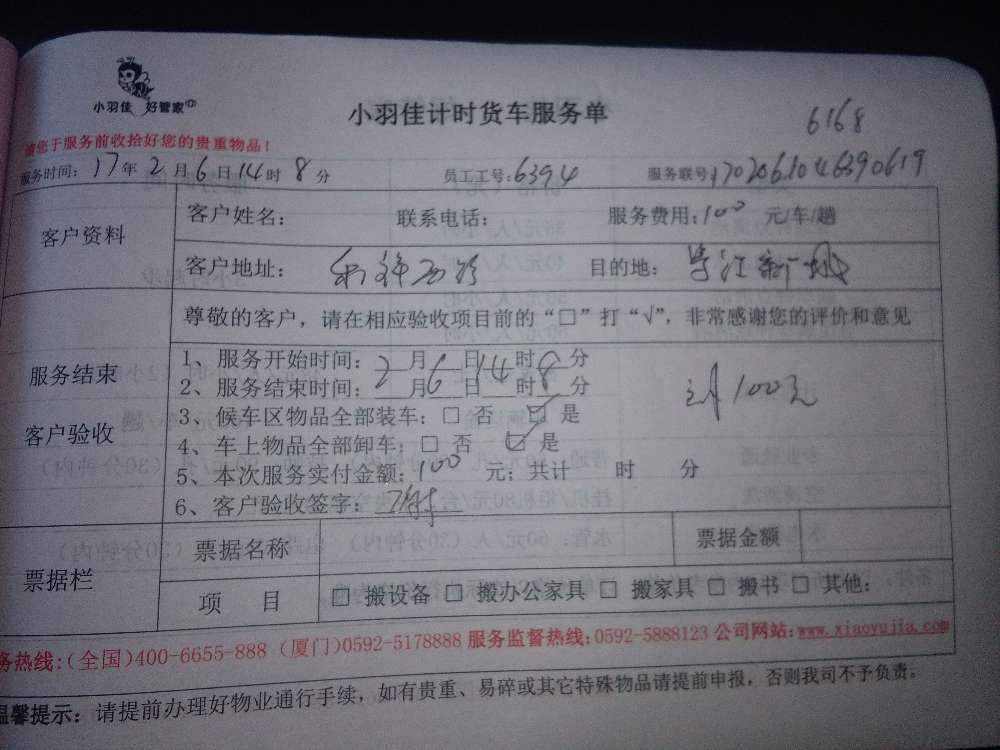 小羽佳 好管家
小羽佳计时货车服务单
6168
请您于服务前收拾好您的贵重物品！
服务时间：17年2月6日14时8分 员工工号：6394 服务联号：1702061046390619
客户资料
客户姓名： 联系电话： 服务费用：100 元/车/趟
客户地址： 目的地：
尊敬的客户，请在相应验收项目前的“□”打“√”，非常感谢您的评价和意见
服务结束
客户验收
1、服务开始时间：2月6日14时8分
2、服务结束时间： 月 日 时 分
3、候车区物品全部装车：□ 否 ☑ 是
4、车上物品全部卸车：□ 否 ☑ 是
5、本次服务实付金额：100 元；共计 时 分
6、客户验收签字：
100元
票据栏
票据名称 票据金额
项 目 □ 搬设备 □ 搬办公家具 □ 搬家具 □ 搬书 □ 其他：
务热线：(全国)400-6655-888 (厦门)0592-5178888 服务监督热线：0592-5888123 公司网站：www.xiaoyujia.com
温馨提示：请提前办理好物业通行手续，如有贵重、易碎或其它特殊物品请提前申报，否则我司不予负责。